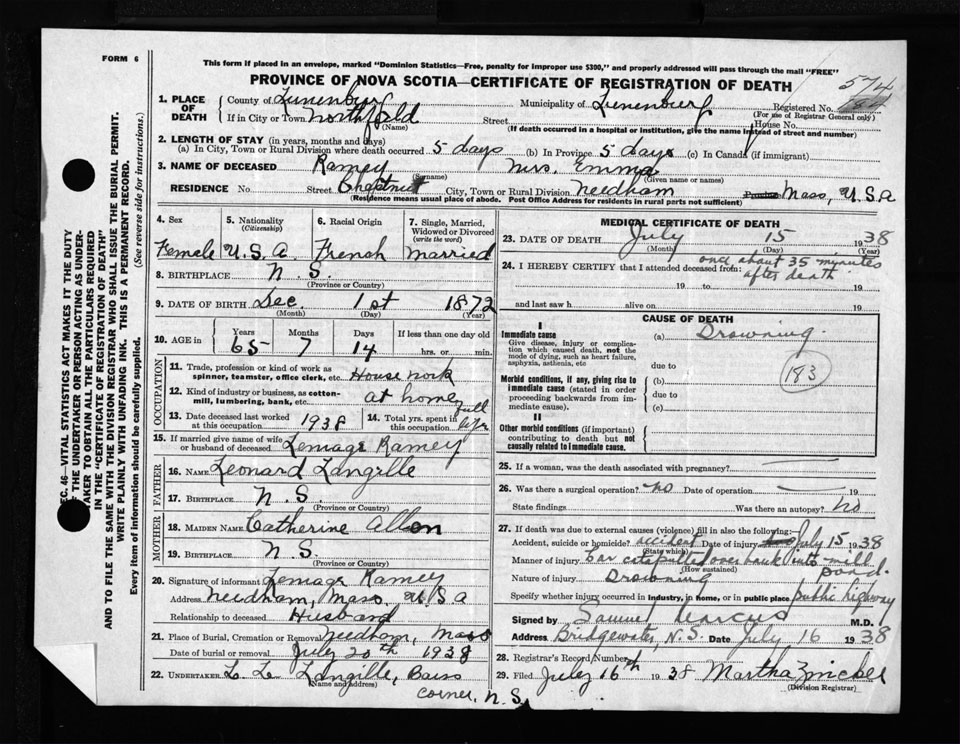 FORM 6
This form if placed in an envelope, marked "Dominion Statistics—Free, penalty for improper use $300," and properly addressed will pass through the mail "FREE"
PROVINCE OF NOVA SCOTIA—CERTIFICATE OF REGISTRATION OF DEATH
574
1. PLACE OF DEATH County of Lunenburg Municipality of Lunenburg Registered No. 184
(For use of Registrar General only)
If in City or Town Northfield (Name) Street House No.
(If death occurred in a hospital or institution, give the name instead of street and number)
2. LENGTH OF STAY (in years, months and days)
(a) In City, Town or Rural Division where death occurred 5 days (b) In Province 5 days (c) In Canada (if immigrant)
3. NAME OF DECEASED Ramey Mrs. Emma
(Surname) (Given name or names)
RESIDENCE No. Street Chestnut City, Town or Rural Division Needham Province Mass, U.S.A
(Residence means usual place of abode. Post Office Address for residents in rural parts not sufficient)
4. Sex 5. Nationality (Citizenship) 6. Racial Origin 7. Single, Married, Widowed or Divorced (write the word)
Female U.S.A. French married
8. BIRTHPLACE N.S.
(Province or Country)
9. DATE OF BIRTH Dec. 1st 1872
(Month) (Day) (Year)
10. AGE in Years Months Days If less than one day old
65 7 14 hrs. or min.
OCCUPATION
11. Trade, profession or kind of work as spinner, teamster, office clerk, etc. House work
12. Kind of industry or business, as cotton-mill, lumbering, bank, etc. at home
13. Date deceased last worked at this occupation 1938 14. Total yrs. spent in this occupation full life
15. If married give name of wife or husband of deceased Lemage Ramey
FATHER
16. NAME Leonard Langille
17. BIRTHPLACE N.S.
(Province or Country)
MOTHER
18. MAIDEN NAME Catherine Allon
19. BIRTHPLACE N.S.
(Province or Country)
20. Signature of informant Lemage Ramey
Address Needham, Mass. U.S.A
Relationship to deceased Husband
21. Place of Burial, Cremation or Removal Needham, Mass
Date of burial or removal July 20th 1938
22. UNDERTAKER L. L. Langille, Barss
(Name and Address)
corner, N.S.
MEDICAL CERTIFICATE OF DEATH
23. DATE OF DEATH July 15 1938
(Month) (Day) (Year)
24. I HEREBY CERTIFY that I attended deceased from: once about 35 minutes
after death
19 to 19
and last saw h alive on 19
CAUSE OF DEATH
I
Immediate cause (a) Drowning.
Give disease, injury or complication which caused death, not the mode of dying, such as heart failure, asphyxia, asthenia, etc
due to
183
Morbid conditions, if any, giving rise to immediate cause (stated in order proceeding backwards from immediate cause).
(b)
due to
(c)
II
Other morbid conditions (if important) contributing to death but not causally related to immediate cause.
25. If a woman, was the death associated with pregnancy?
26. Was there a surgical operation? no Date of operation 19
State findings Was there an autopsy? No
27. If death was due to external causes (violence) fill in also the following:
Accident, suicide or homicide? accident Date of injury July 15 1938
(State which)
Manner of injury Car catapulted over bank into mill pond.
(How sustained)
Nature of injury Drowning
Specify whether injury occurred in industry, in home, or in public place public highway
Signed by Samuel Marcus M.D.
Address Bridgewater, N.S. Date July 16 1938
28. Registrar's Record Number
29. Filed July 16th 1938 Martha Zwicker
(Division Registrar)
SEC. 46—VITAL STATISTICS ACT MAKES IT THE DUTY
OF THE UNDERTAKER OR PERSON ACTING AS UNDER-
TAKER TO OBTAIN ALL THE PARTICULARS REQUIRED
IN THE "CERTIFICATE OF REGISTRATION OF DEATH"
AND TO FILE THE SAME WITH THE DIVISION REGISTRAR WHO SHALL ISSUE THE BURIAL PERMIT.
WRITE PLAINLY WITH UNFADING INK. THIS IS A PERMANENT RECORD.
Every item of information should be carefully supplied. (See reverse side for instructions.)